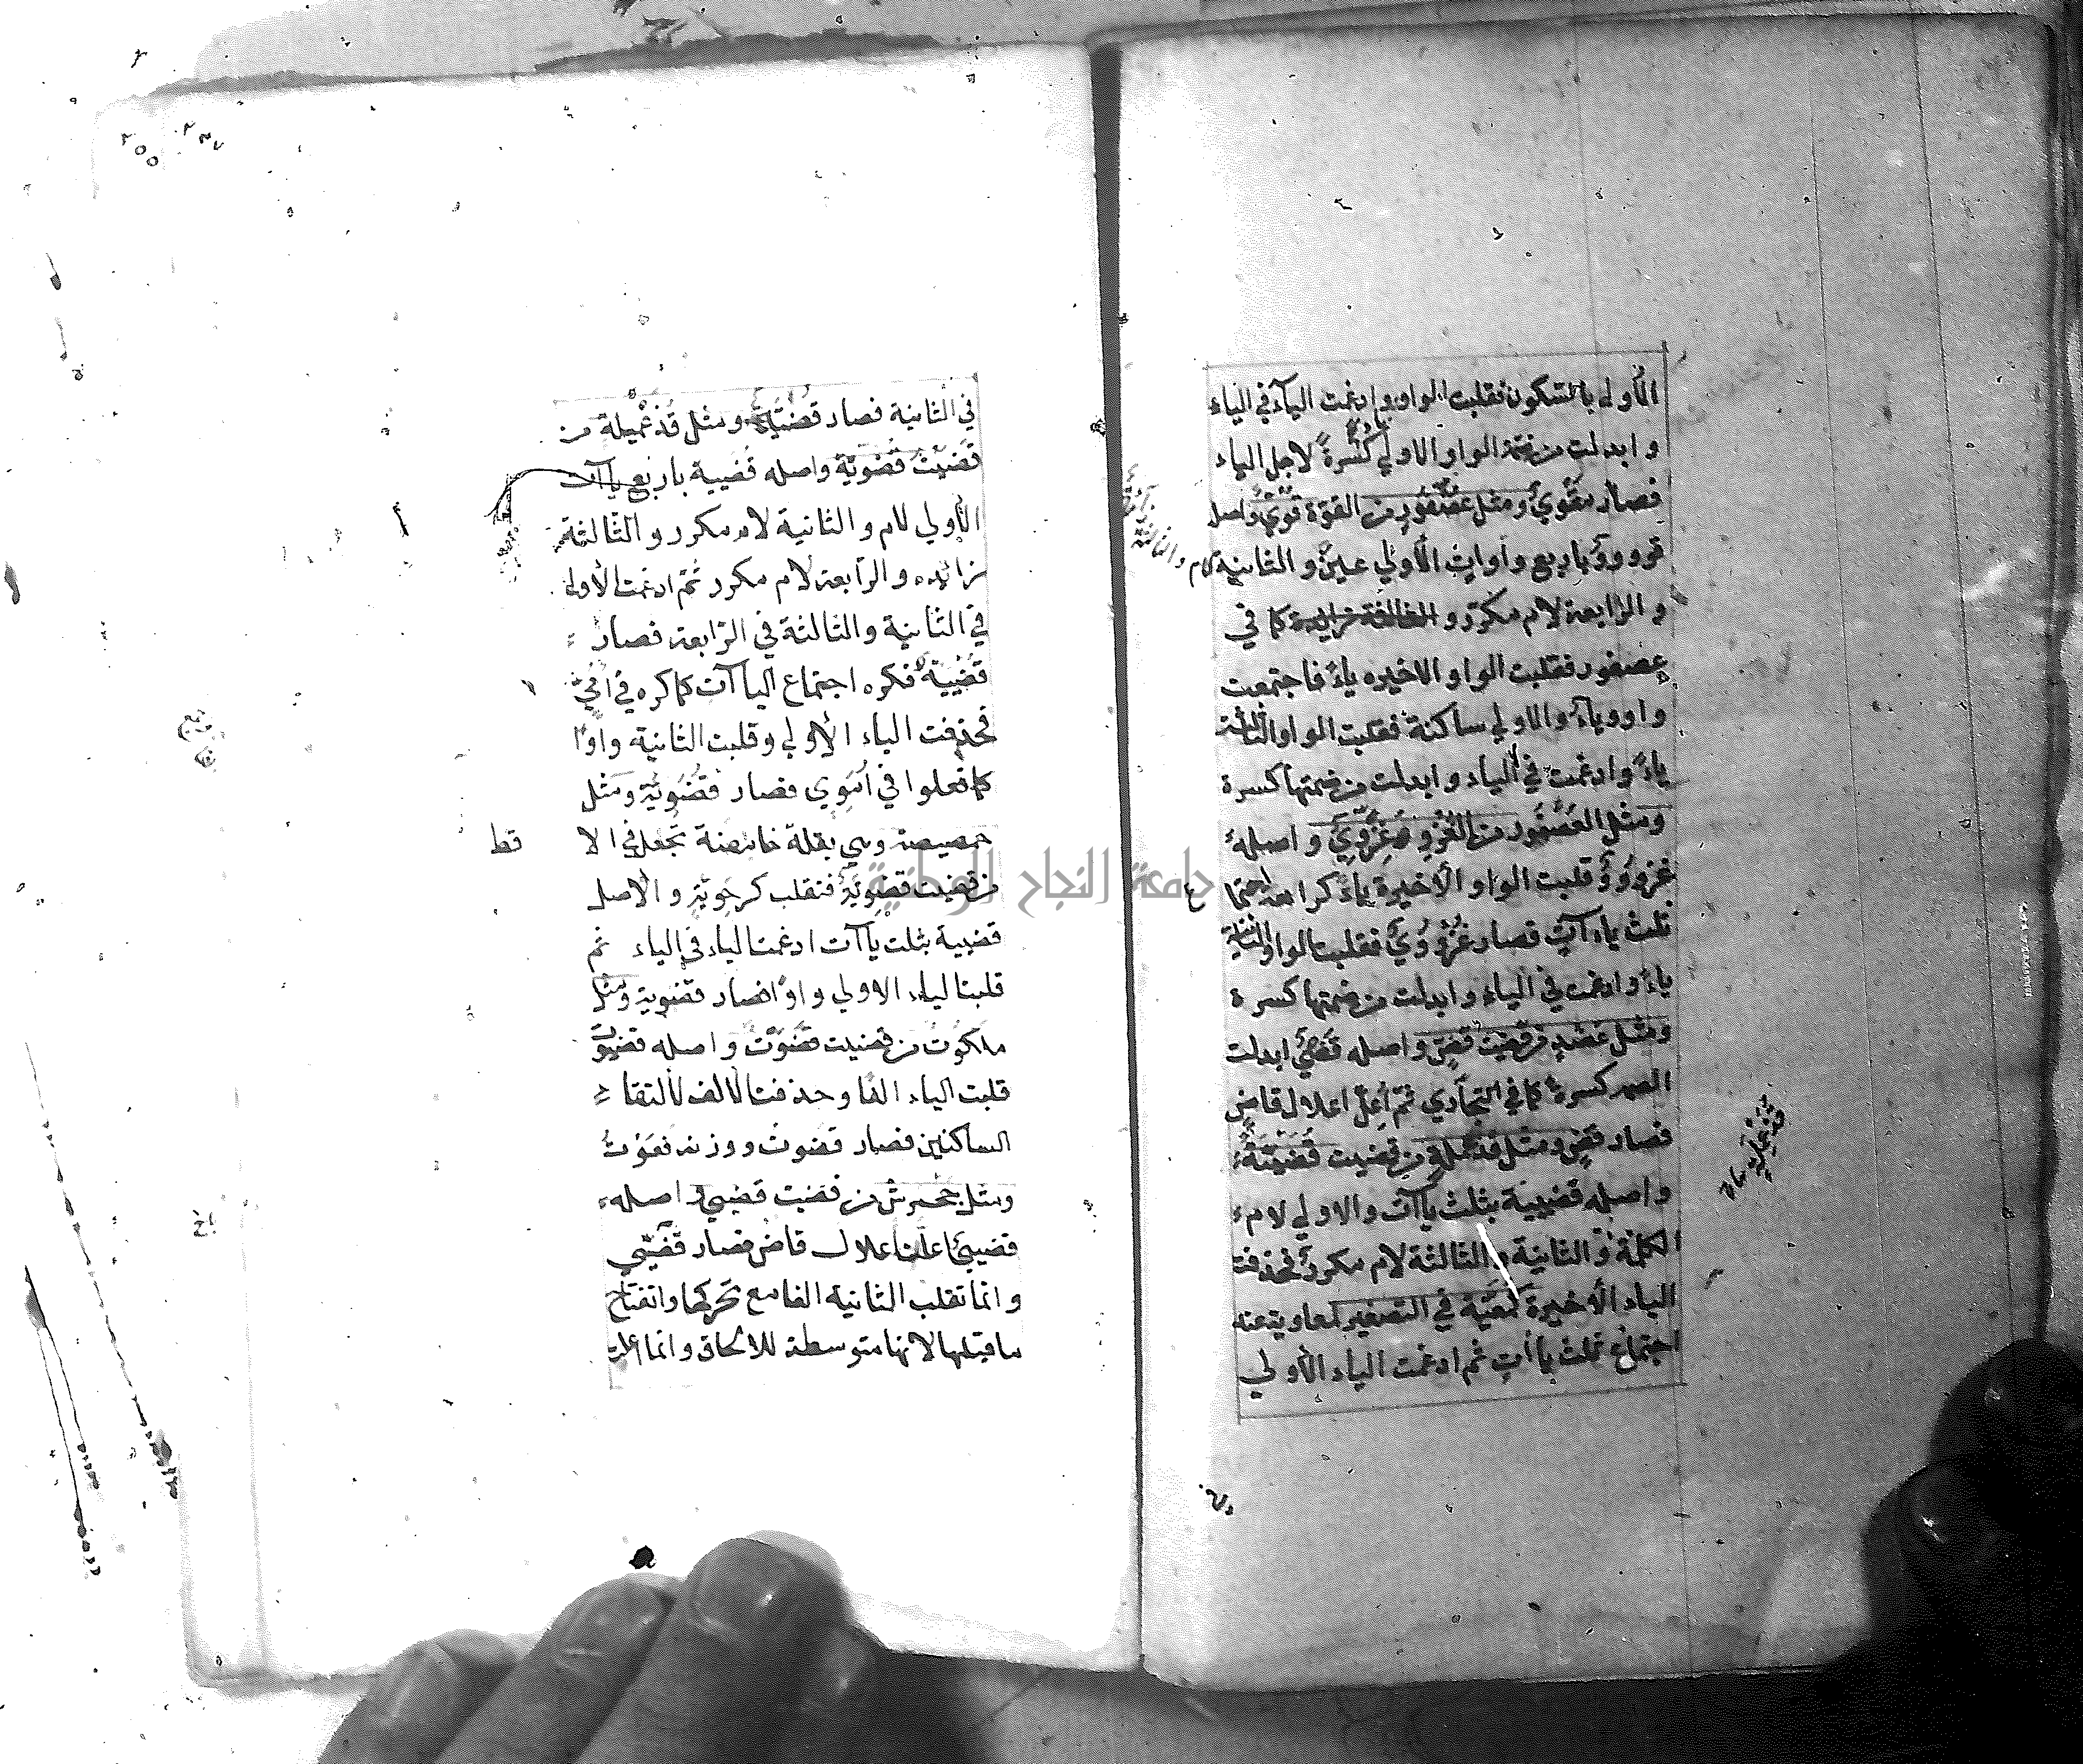 الأولى بالسكون فقلبت الواو وادغمت الياء في الياء
وابدلت من ضمة الواو الاولي كسرة لاجل الياء
فصار مقوي ومثل عصفور من القوة قوي واصله
قوووو باربع واوات الأولي عين والثانية لام والثالثة زائدة
والرابعة لام مكرر كما في
عصفور فقلبت الواو الاخيره ياء فاجتمعت
واو وياء والاولي ساكنة فقلبت الواو الثالثة
ياء وادغمت في الياء وابدلت من ضمتها كسرة
ومثل العصفور من الغزو غزوي واصله
غزووو قلبت الواو الأخيرة ياء كراهة اجتماع
ثلث فصار غزووي فقلبت الواو الثانية
ياء وادغمت في الياء وابدلت من ضمتها كسرة
ومثل عضد من قضيت قض واصله قضي ابدلت
الضمه كسرة كما في التجاري ثم أعل اعلال قاض
فصار قض ومثل قذعملة من قضيت قضيية
واصله قضييية بثلث ياآت والاولي لام
الكلمة والثانية والثالثة لام مكرر فحذفت
الياء الأخيرة كمعية في التصغير لمعاوية عند
اجتماع ثلث ياآت ثم ادغمت الياء الأولي
في الثانية فصار قضية ومثل قذعميلة من
قضيت قضوية واصله قضيية باربع ياآت
الأولي لام والثانية لام مكرر والثالثة
زائده والرابعة لام مكرر ثم ادغمت الأولى
في الثانية والثالثة في الرابعة فصار
قضيية فكره اجتماع الياآت كما كره في اميي
فحذفت الياء الأولي وقلبت الثانية واوا
كما فعلوا في اموي فصار قضوية ومثل
حمصيصة وهي بقلة حامضة تجعل في الا
قط
من قضيت قضوية فتقلب كرحوية والأصل
قضيية بثلث ياآت ادغمت الياء في الياء ثم
قلبت الياء الاولي واوا فصار قضوية ومثل
ملكوت من قضيت قضوت واصله قضيوت
قلبت الياء الفا وحذفت الألف لالتقاء
الساكنين فصار قضوت ووزنه فعوت
ومثل جحمرش من قضيت قضيي واصله
قضييي اعلت اعلال قاض فصار قضيي
وانما تقلب الثانية الفا مع تحركها وانفتاح
ما قبلها لانها متوسطة للالحاق وانما اعلت
جامعة النجاح الوطنية